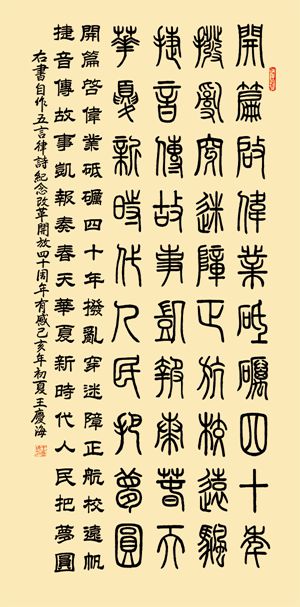 開篇啓偉業砥礪四十年
撥亂穿迷障正航校遠颿
捷音傳故事凱報奏春天
華夏新時代人民把夢圓
開篇啓偉業砥礪四十年撥亂穿迷障正航校遠帆
捷音傳故事凱報奏春天華夏新時代人民把夢圓
右書自作五言律詩紀念改革開放四十周年有感己亥年初夏王慶海